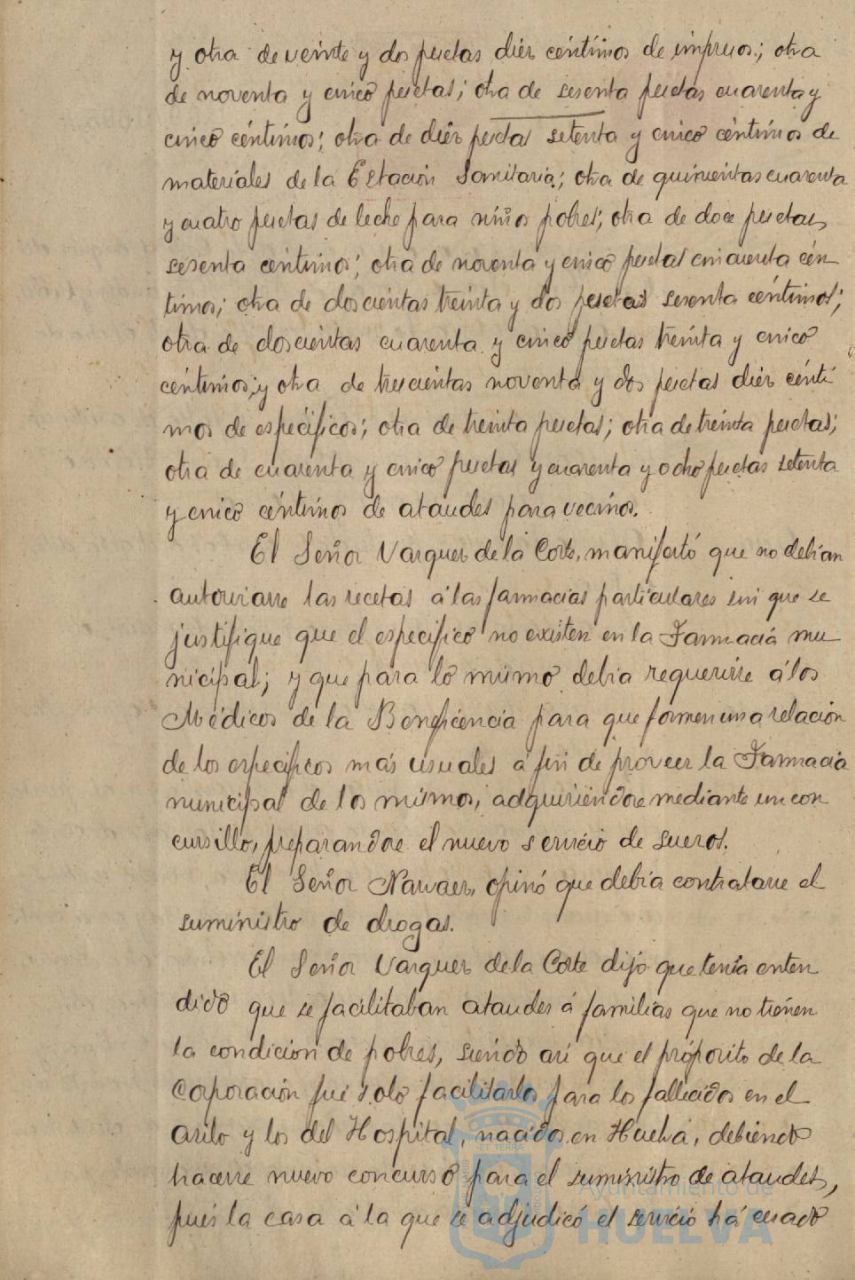 y otra de veinte y dos pesetas diez céntimos de impresos; otra
de noventa y cinco pesetas; otra de sesenta pesetas cuarenta y
cinco céntimos; otra de diez pesetas setenta y cinco céntimos de
materiales de la Estación Sanitaria; otra de quinientas cuarenta
y cuatro pesetas de leche para niños pobres; otra de doce pesetas
sesenta céntimos; otra de noventa y cinco pesetas cincuenta cén
timos; otra de doscientas treinta y dos pesetas sesenta céntimos;
otra de doscientas cuarenta y cinco pesetas treinta y cinco
céntimos; y otra de trescientas noventa y dos pesetas diez cénti
mos de específicos; otra de treinta pesetas; otra de treinta pesetas;
otra de cuarenta y cinco pesetas y cuarenta y ocho pesetas setenta
y cinco céntimos de ataudes para vecinos.
El Señor Vazquez de la Corte, manifestó que no debían
autorizarse las recetas á las farmacias particulares sin que se
justifique que el específico no existen en la Farmacia mu
nicipal; y que para lo mismo debía requerirse á los
Médicos de la Beneficencia para que formen una relación
de los específicos más usuales á fin de proveer la Farmacia
municipal de los mismos, adquiriéndose mediante un con
cursillo, preparandose el nuevo servicio de sueros.
El Señor Narvaez, opinó que debía contratarse el
suministro de drogas.
El Señor Vazquez de la Corte dijo que tenía enten
dido que se facilitaban ataudes á familias que no tienen
la condición de pobres, siendo así que el propósito de la
Corporación fué solo facilitarlos para los fallecidos en el
asilo y los del Hospital, nacidos en Huelva, debiendo
hacerse nuevo concurso para el suministro de ataudes,
pués la casa á la que se adjudicó el servicio há
Ayuntamiento de
HUELVA